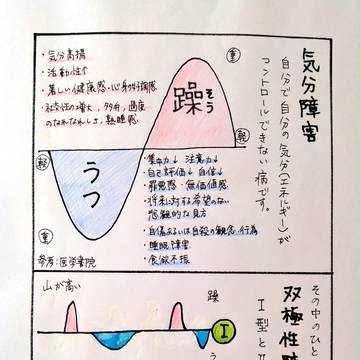 気分障害
自分で自分の気分(エネルギー)が
コントロールできない病です。
・気分高揚
・活動性↑
・著しい健康感・心身好調感
・社交性の増大、多弁、過度
のなれなれしさ、熱睡感
重
躁
そう
軽
軽
うつ
重
・集中力↓ 注意力↓
・自己評価↓ 自信↓
・罪悪感・無価値感
・将来に対する希望のない
悲観的な見方
・自傷あるいは自殺の観念、行為
・睡眠障害
・食欲不振
参考:医学書院
その中のひと
双極性
Ⅰ型と
山が高い
躁
Ⅰ
う